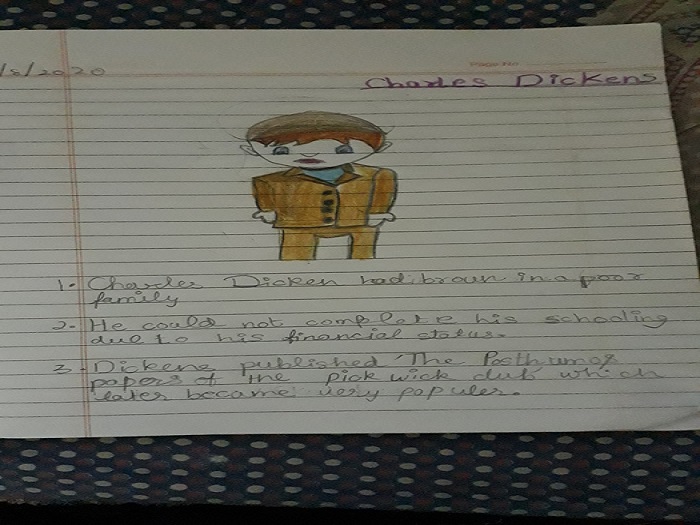 /8/2020
Page No.
Charles Dickens
1. Charles Dicken had braun in a poor
family
2. He could not complete his schooling
due to his financial status.
3. Dickens published 'The Posthumos
papers of the pick wick club' which
later became very populer.